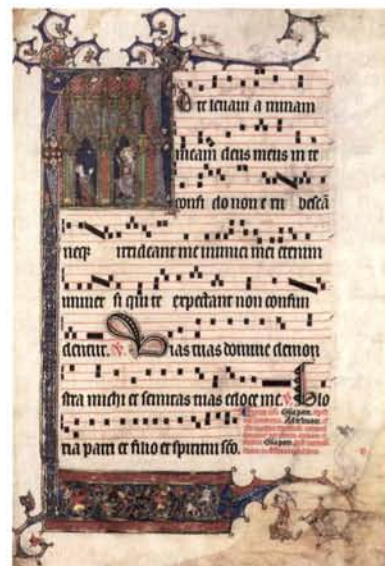 D te levavi a nimam
meam deus meus in te
confi do non e ru bescā
neqȝ irrideant me inimici mei etenim
univer si qui te expectant non confun
dentur. Vias tuas domine demon
stra michi et semitas tuas edoce me. Glo
ria patri et filio et spiritui sčo.